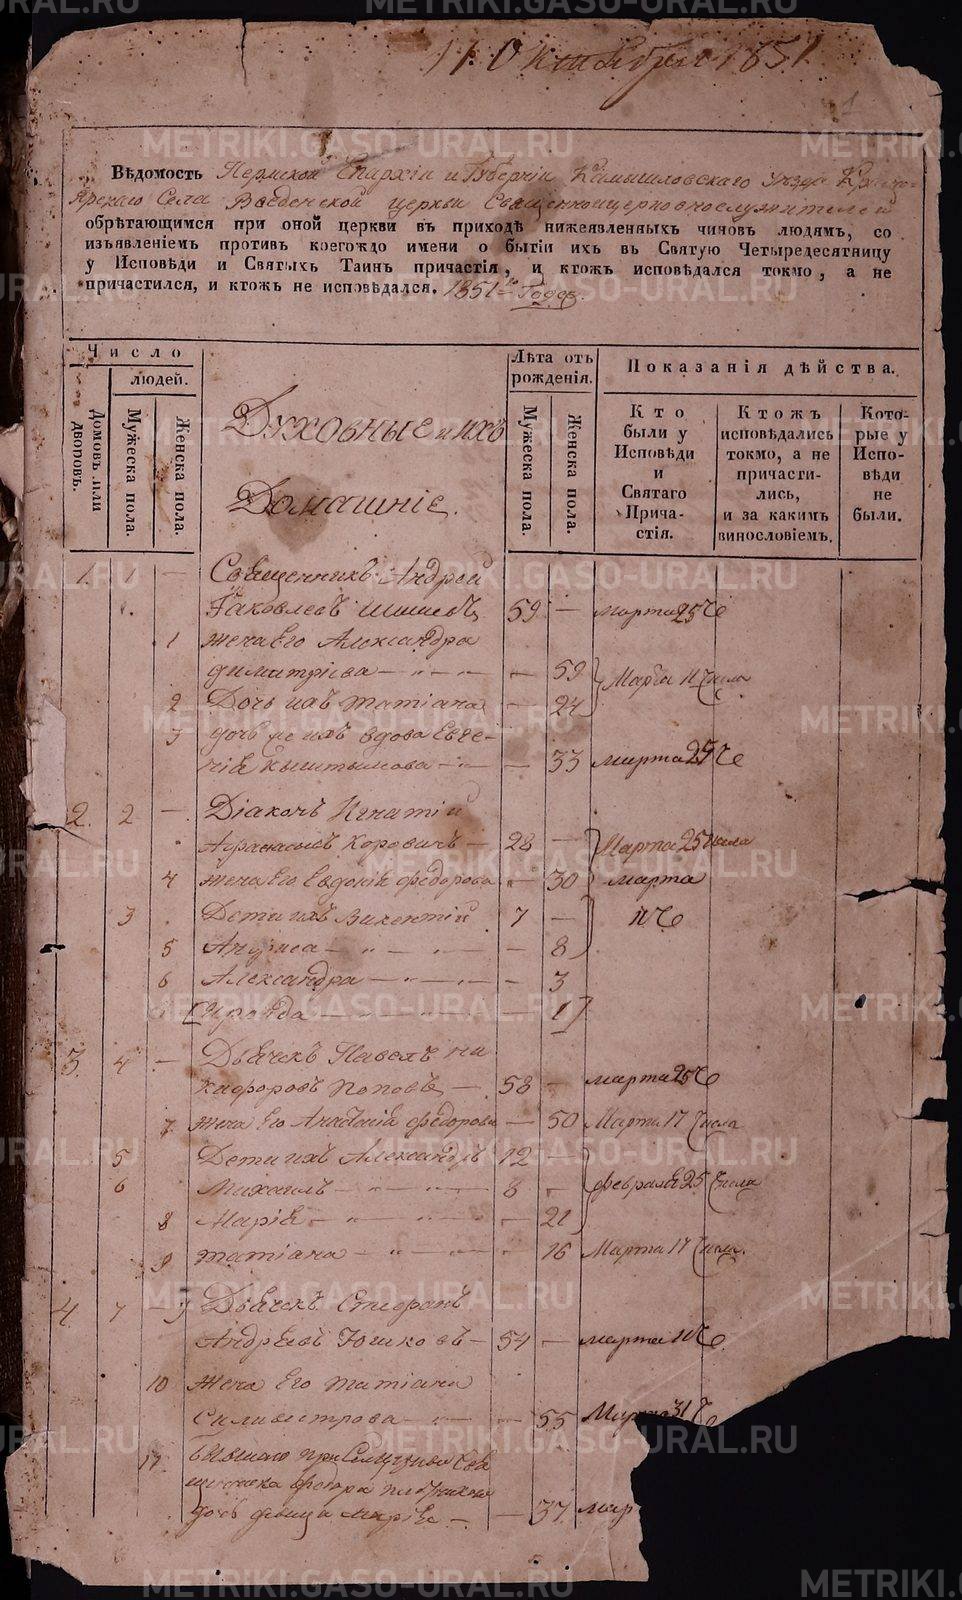 11 Октября 1851
1
Вѣдомость Пермской Епархіи и Губерніи Камышловскаго уѣзда Красно-
ярскаго Села Введенской церкви Священноицерковнослужителей
обрѣтающимся при оной церкви въ приходѣ нижеявленныхъ чиновъ людямъ, со
изъявленіемъ противъ коегождо имени о бытіи ихъ въ Святую Четыредесятницу
у Исповѣди и Святыхъ Таинъ причастія, и ктожъ исповѣдался токмо, а не
причастился, и ктожъ не исповѣдался. 1851го Года
Число
людей.
Домовъ или дворовъ.
Мужеска пола.
Женска пола.
Духовные и ихъ
Домашніе.
Лѣта отъ
рожденія.
Мужеска пола.
Женска пола.
Показанія дѣйства.
Кто
были у
Исповѣди
и
Святаго
Прича-
стія.
Ктожъ
исповѣдались
токмо, а не
причасти-
лись,
и за какимъ
винословіемъ.
Кото-
рые у
Испо-
вѣди
не
были.
1. 1 — Священникъ Андрей
Іаковлевъ 59 — Марта 25 Ч
1 жена Его Александра
Димитріева — 59 Марта 11 Числа
2 Дочь ихъ Татіана — 24
3 дочь же ихъ вдова Евге-
нія Кыштымова — 33 Марта 25 Ч
2. 2 — Діаконъ Игнатій
Афанасьевъ Коровинъ — 28 — Марта 25 числа
4 жена Его Евдокія Федорова — 30 марта
3 Дети ихъ Викентій 7 — 11 Ч
5 Анфиса — 8
6 Александра — 3
[Ираида — 1]
3. 4 — Дьячекъ Павелъ Ни
кифоровъ Поповъ — 58 — Марта 25 Ч
7 жена Его Анастасія Федорова — 50 Марта 17 Числа
5 Дети ихъ Александръ 12 —
6 Михаилъ — 8 — Февраля 25 Числа
8 Марія — 21
9 Татіана — 16 Марта 17 Числа
4. 7 — Дьячекъ Стефанъ
Андреевъ Юшковъ — 54 — марта 11 Ч
10 Жена Его Татіана
Сильвестрова — 55 Марта 31 Ч
11 бывшаго при
Федора
дочь девица Марія — 37 Мар
METRIKI.GASO-URAL.RU